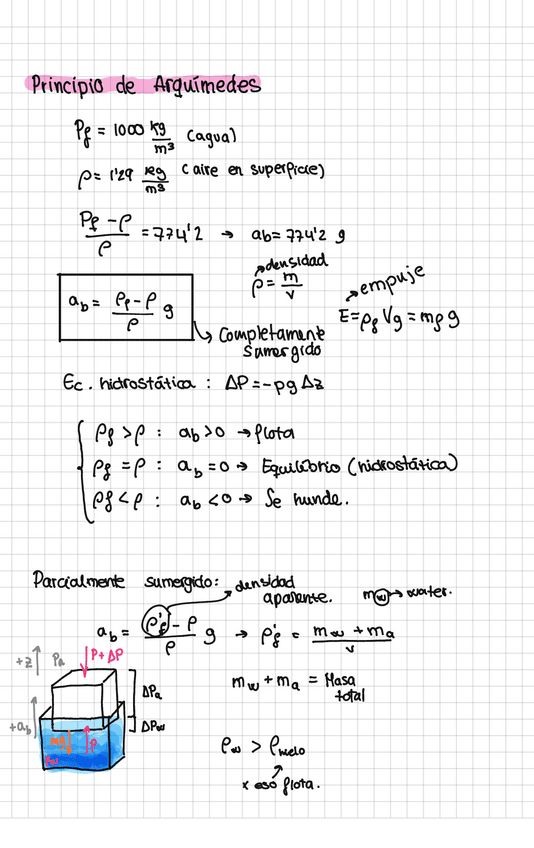 Principio de Arquímedes
ρf = 1000 kg/m³ (agua)
ρ = 1'29 kg/m³ (aire en superficie)
(ρf - ρ)/ρ = 774'2 → ab = 774'2 g
densidad
ρ = m/v
ab = (ρf - ρ)/ρ g
empuje
E = ρf Vg = mf g
Completamente
sumergido
Ec. hidrostática : ΔP = -ρg Δz
ρf > ρ : ab > 0 → flota
ρf = ρ : ab = 0 → Equilibrio (hidrostática)
ρf < ρ : ab < 0 → Se hunde.
Parcialmente sumergido:
densidad
aparante.
mw → water.
ab = (ρ'f - ρ)/ρ g → ρ'f = (mw + ma)/v
+z Pa P + ΔP
ΔPa
mw + ma = Masa
total
+ab
ΔPw
mg P
ρw
ρw > ρhielo
x eso flota.